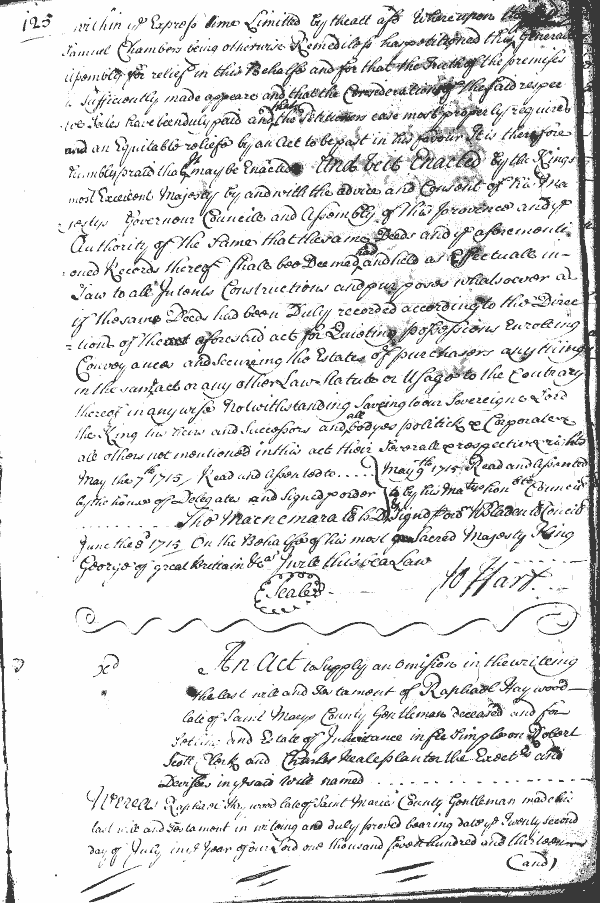 125
within ye Express time Limited by the act afsd Whereupon the
Samuel Chambers being otherwise Remediless has petitioned this General
Assembly for relief in this Behalfe and for that the Truth of the premisses
is Sufficiently made appeare and that the Considerations of the said respec
tive Sales have been duly paid and that the Petitioners case most properly requires
and an Equitable reliefe by an Act to be past in his favour It is therefore
humbly praid that it may be Enacted And be it Enacted by the Kings
most Excelent Majesty by and with the advice and Consent of his Ma
jestys Governour Councill and Assembly of this province and ye
Authority of the Same that the same Deeds and ye aforementi
oned Records thereof shall bee Deemed had and held as Effectuale in
Law to all Intents Constructions and purposes whatsoever as
if the same Deeds had been Duly recorded according to the Direc
tions of the aforesaid act for Quieting possessions Enroleing
Conveyances and Secureing the Estates of purchasers any thing
in the same act or any other Law Statute or Usage to the Contrary
thereof in any wise Notwithstanding Saveing to our Sovereigne Lord
the King his heirs and Successors and all bodyes politick & Corporate &
all others not mentioned in this act their Severall & respective rights
May the 7th 1715 Read and Assented to May 9th 1715 Read and Assented
by the house of Delegates and signed p order to by his Matys hon ble Councill
Tho Macnemara Cl Lo D Signd p ord W Bladen Cl Concill
June the 3d 1715 On the Behalfe of his most Sacred Majesty King
George of great Brittain &ca I wile this bea Law
Jo Hart
Sealed
xd An Act to Supply an omission in the writeing
the last wile and Testament of Raphael Haywood
late of Saint Marys County Gentleman deceased and for
Setling and Estate of Inheritance in fee simple on Robert
Scott Clerk and Charles Neale planter the Execrs and
Devisees in ye said Will named
Whereas Raphael Haywood late of Saint Maries County Gentleman made his
last will and Testament in writeing and duly proved bearing date ye Twenty second
day of July in ye Year of our Lord one thousand seven Hundred and thirteen
(and)